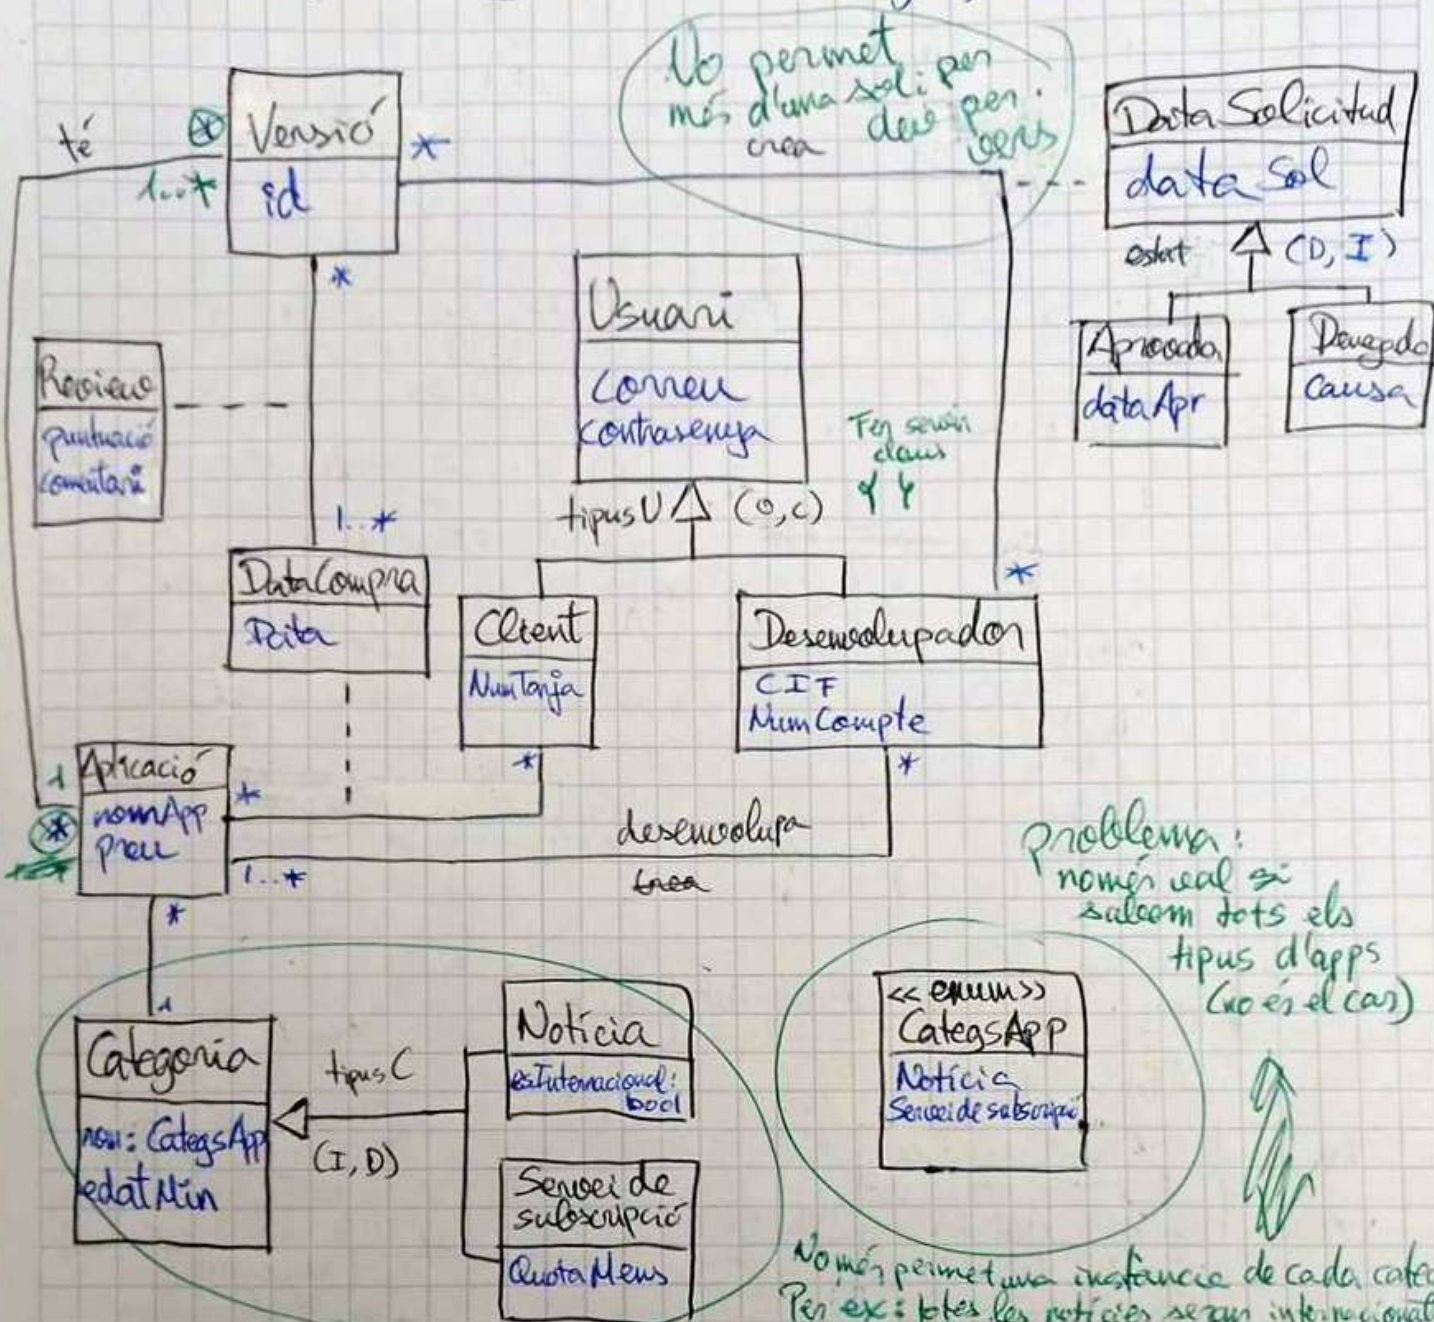 No permet
més d'una sol·i per
crea deve per.
vers
té
Versió
id
*
1..*
*
Data Solicitud
data Sol
estat
(D, I)
Aprovada
dataApr
Denegada
Causa
Usuari
Correu
Contrasenya
tipusU
(O,C)
Fer servir
claus
{ }
Review
puntuació
comentari
1..*
DataCompra
Data
Client
NumTarja
*
Desenvolupador
CIF
NumCompte
*
*
1
*
Aplicació
nomApp
preu
*
1..*
*
desenvolupa
crea
problema:
només val si
sabem tots els
tipus d'apps
(no és el cas)
1
Categoria
nom: CategsApp
edatMin
tipus C
(I, D)
Notícia
esInternacional:
bool
Servei de
subscripció
QuotaMens
<<enum>>
CategsApp
Notícia
Servei de subscripció
Només permet una instància de cada categ
Per ex: totes les notícies seran internacional